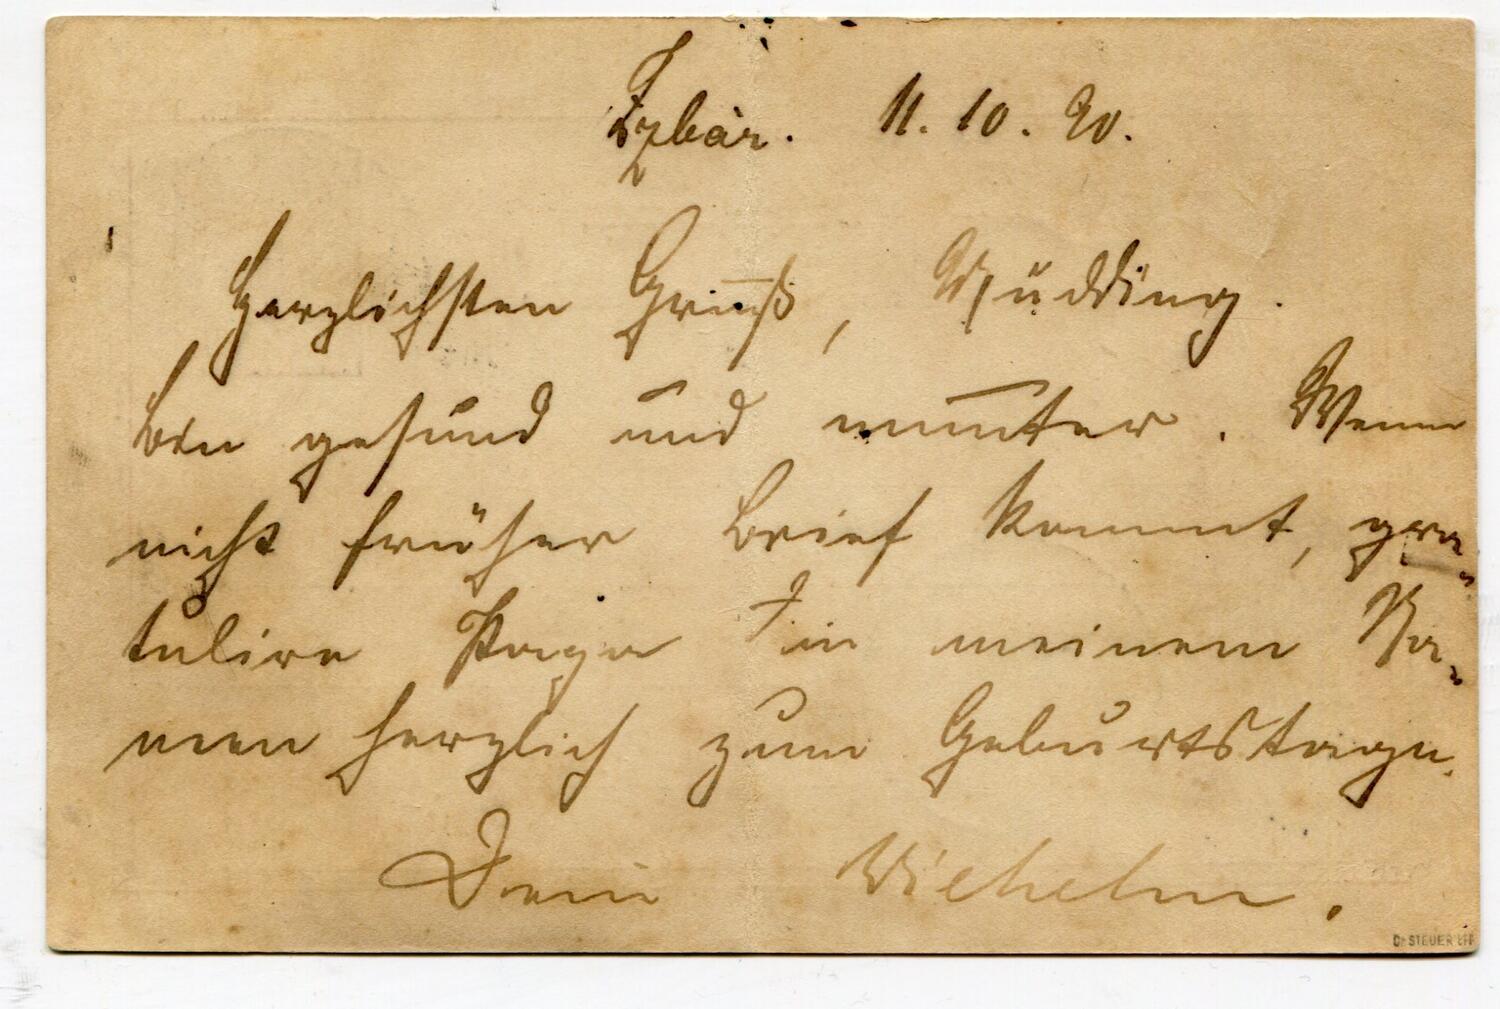 Zzbar. 11.10.90.
Herzlichsten Gruß, Mudding.
Bin gesund und munter. Wenn
nicht früher Brief kommt, gra-
tulire Papa in meinem Na-
men herzlich zum Geburtstage.
Dein Wilhelm.
Dr STEUER